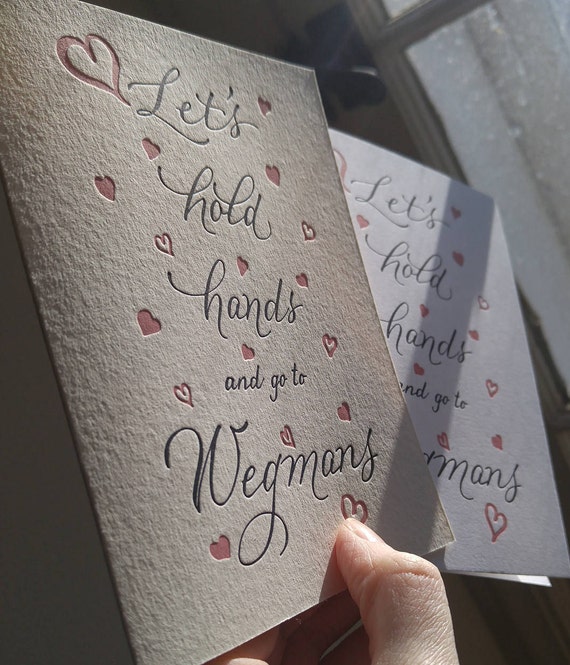 Let's
hold
hands
and go to
Wegmans
Let's
hold
hands
and go to
Wegmans